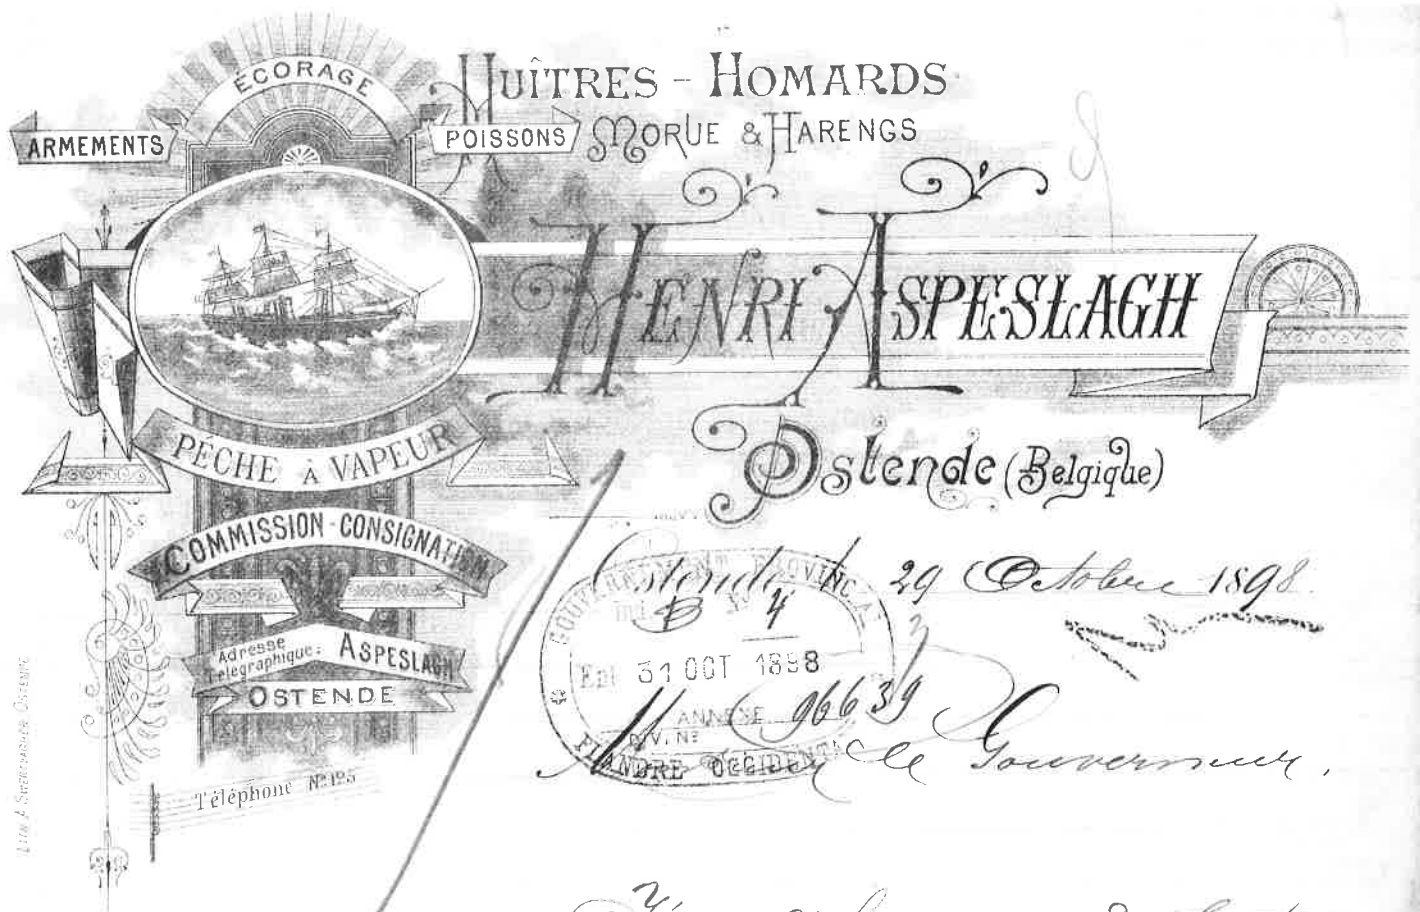 ÉCORAGE
ARMEMENTS
POISSONS
HUÎTRES - HOMARDS
MORUE & HARENGS
HENRI ASPESLAGH
Ostende (Belgique)
PÊCHE À VAPEUR
COMMISSION - CONSIGNATION
Adresse
Télégraphique: ASPESLAGH
OSTENDE
Téléphone Nº 125
Ostende, 29 Octobre 1898.
GOUVERNEMENT PROVINCIAL
B Nº 4
31 OCT 1898
ANNEXE 96639
DIV. Nº
FLANDRE OCCIDENTALE
le Gouverneur.